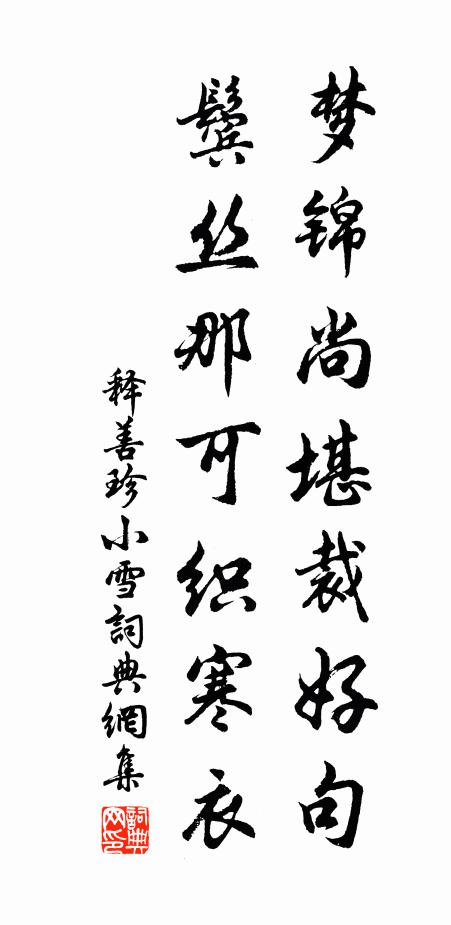 梦锦尚堪裁好句
鬓丝那可织寒衣
释善珍小雪詞典網集
詞典网印